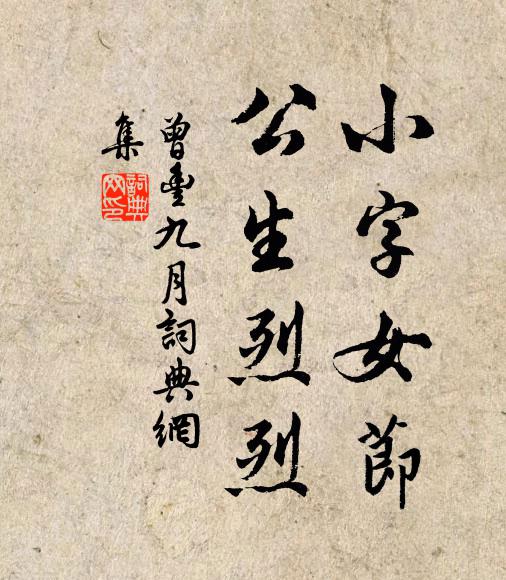 小字女節
公生烈烈
曾豐九月詞典網
集
詞典網印